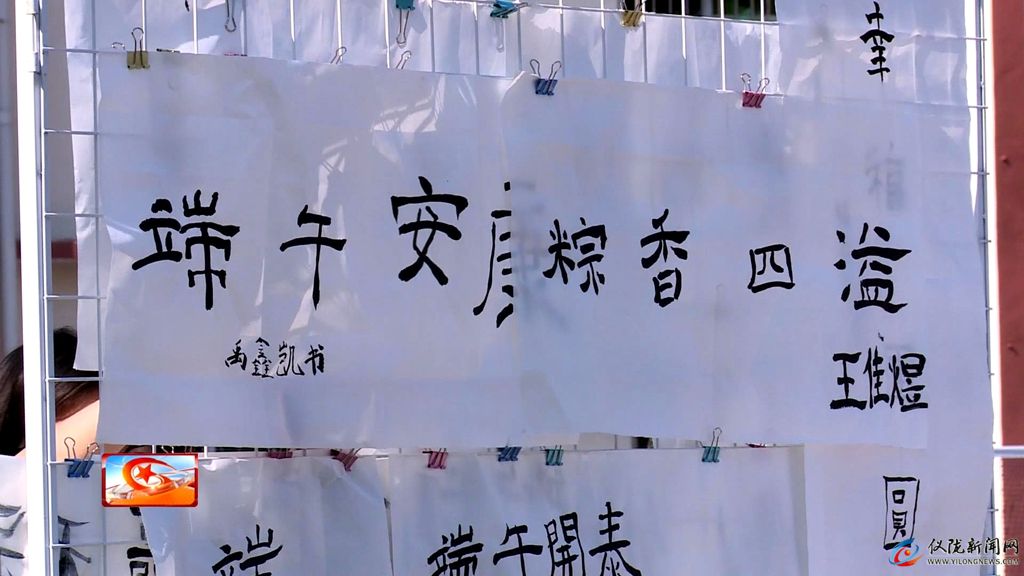 端午安康
禹鑫凯书
粽香四溢
王佳煜
端
端午開泰
圓
仪陇新闻网
WWW.YILONGNEWS.COM